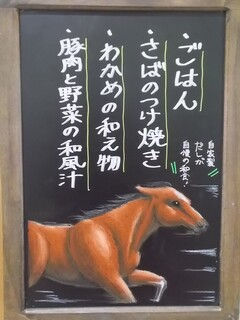 ・ごはん
・さばのつけ焼き
・わかめの和え物
・豚肉と野菜の和風汁
自家製
だしが
自慢の和食!